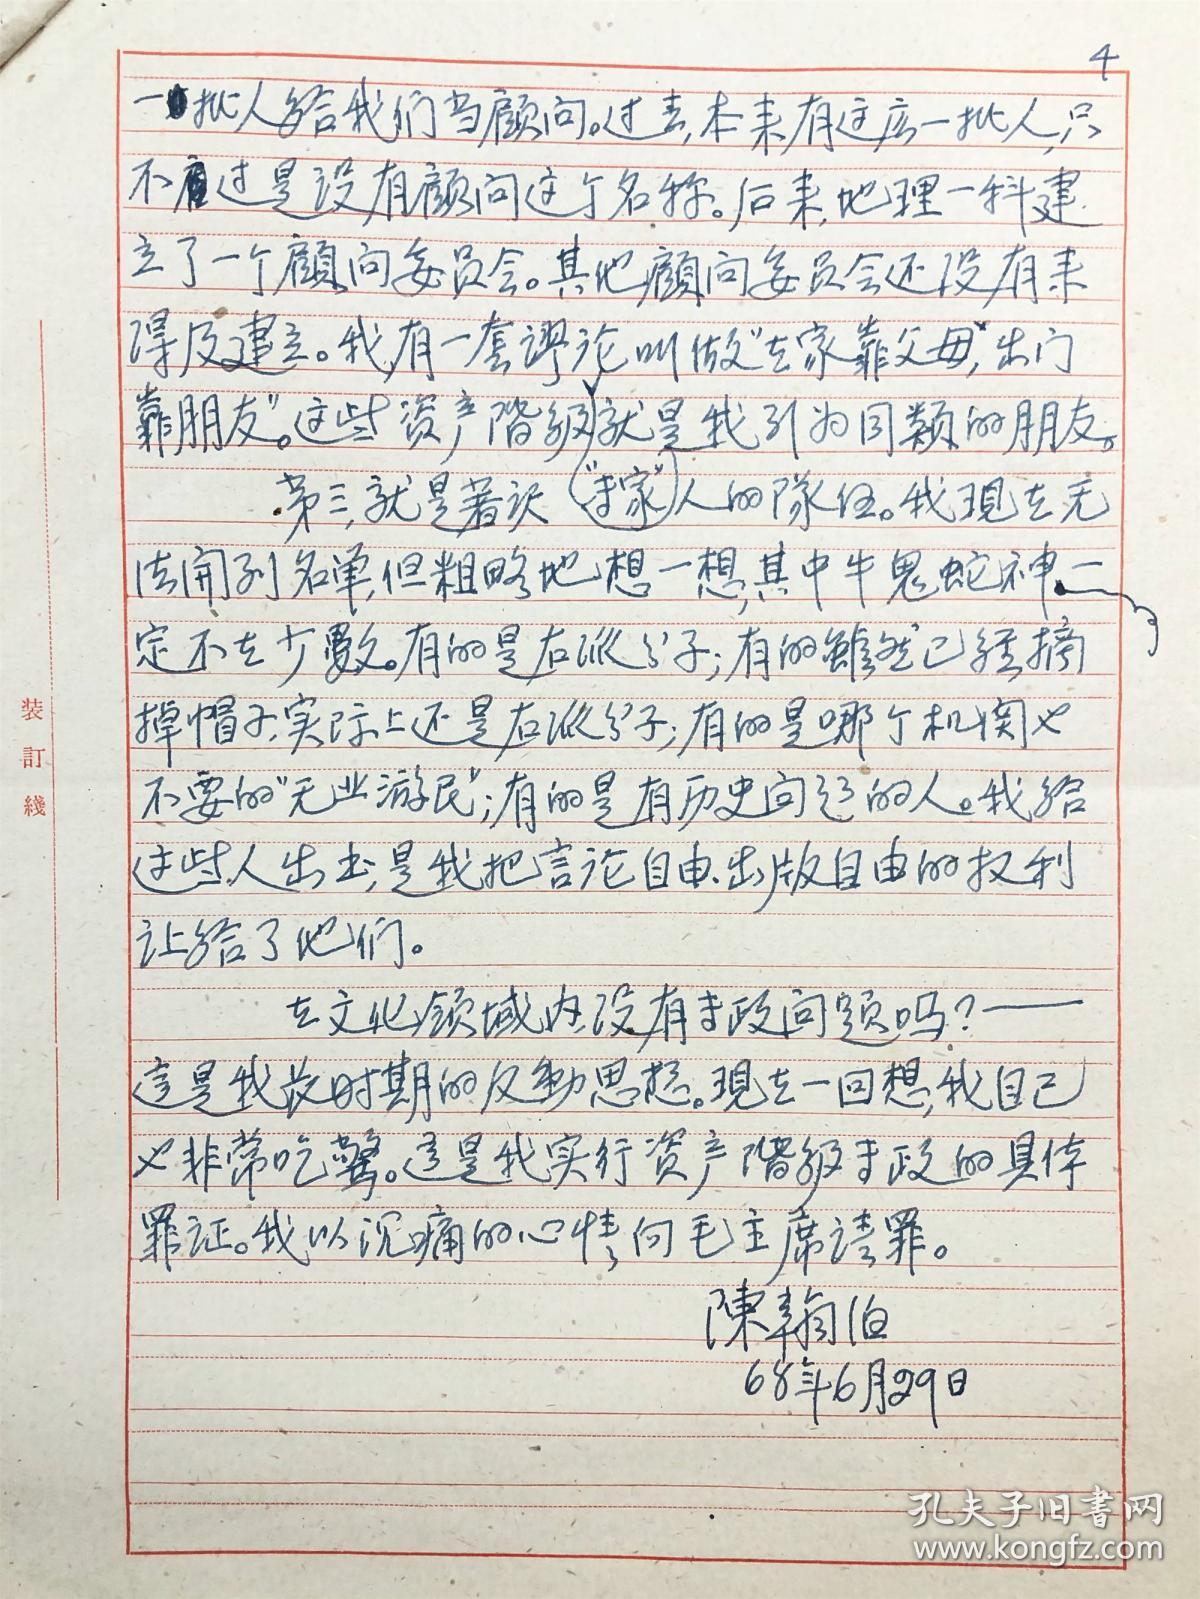 4
一批人给我们当顾问。过去,本来有这么一批人,只
不过是没有顾问这个名称。后来,地理一科建
立了一个顾问委员会。其他顾问委员会还没有来
得及建立。我有一套谬论叫做“在家靠父母,出门
靠朋友”。这些资产阶级就是我引为同类的朋友。
第三,就是著译“专家”人的隊伍。我現在无
法开列名单,但粗略地想一想,其中牛鬼蛇神一
定不在少数。有的是右派分子;有的雖然已经摘
掉帽子,实际上还是右派分子;有的是哪个机関也
不要的“无业游民”;有的是有历史问题的人。我给
这些人出书,是我把言论自由、出版自由的权利
让给了他们。
在文化领域内没有专政问题吗?——
这是我当时期的反動思想。現在一回想,我自己
也非常吃驚。这是我实行资产階级专政的具体
罪证。我以沉痛的心情向毛主席请罪。
陳翰伯
68年6月29日
装訂綫
孔夫子旧书网
www.kongfz.com